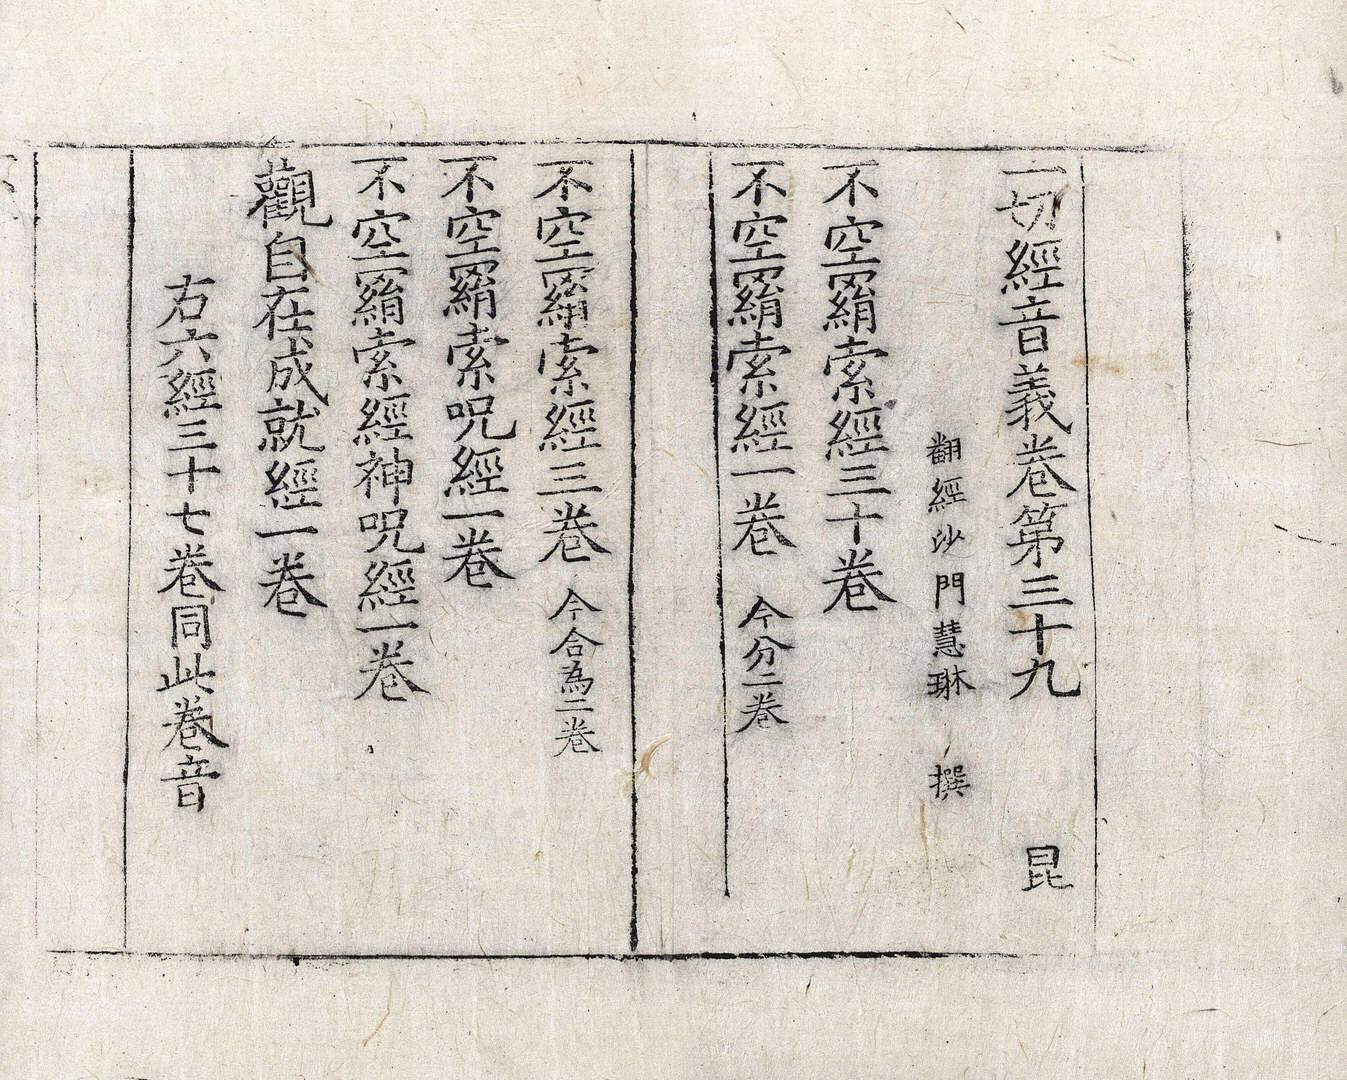 一切經音義卷第三十九 昆
翻經沙門慧琳 撰
不空羂索經三十卷
不空羂索經一卷 今分二卷
不空羂索經三卷 今合為二卷
不空羂索呪經一卷
不空羂索經神呪經一卷
觀自在成就經一卷
右六經三十七卷同此卷音